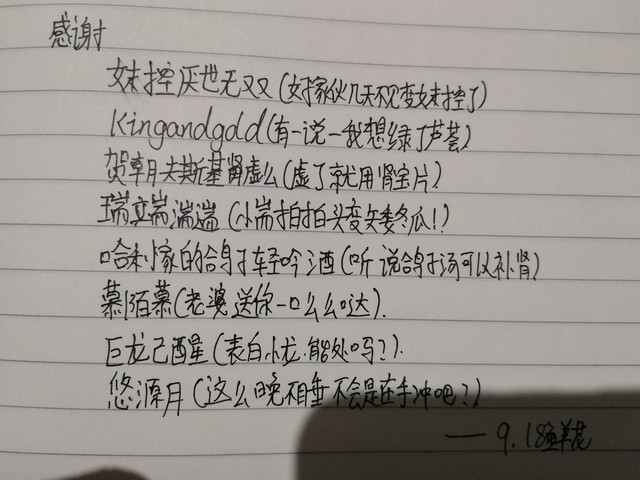 感谢
妹控厌世无双(好家伙几天不见变妹控了)
Kingandgold(有一说一我想绿了芦荟)
贺朝夫斯基肾虚么(虚了就用肾宝片)
瑞端湍遄(小端拍拍头变矢委冬瓜!)
哈利家的鸽子轻吟酒(听说鸽子汤可以补肾)
慕陌慕(老婆送你一口么么哒).
巨龙已醒星(表白小龙.能处吗?).
悠源月(这么晚不睡不会是在手冲吧?)
—9.18鲜花